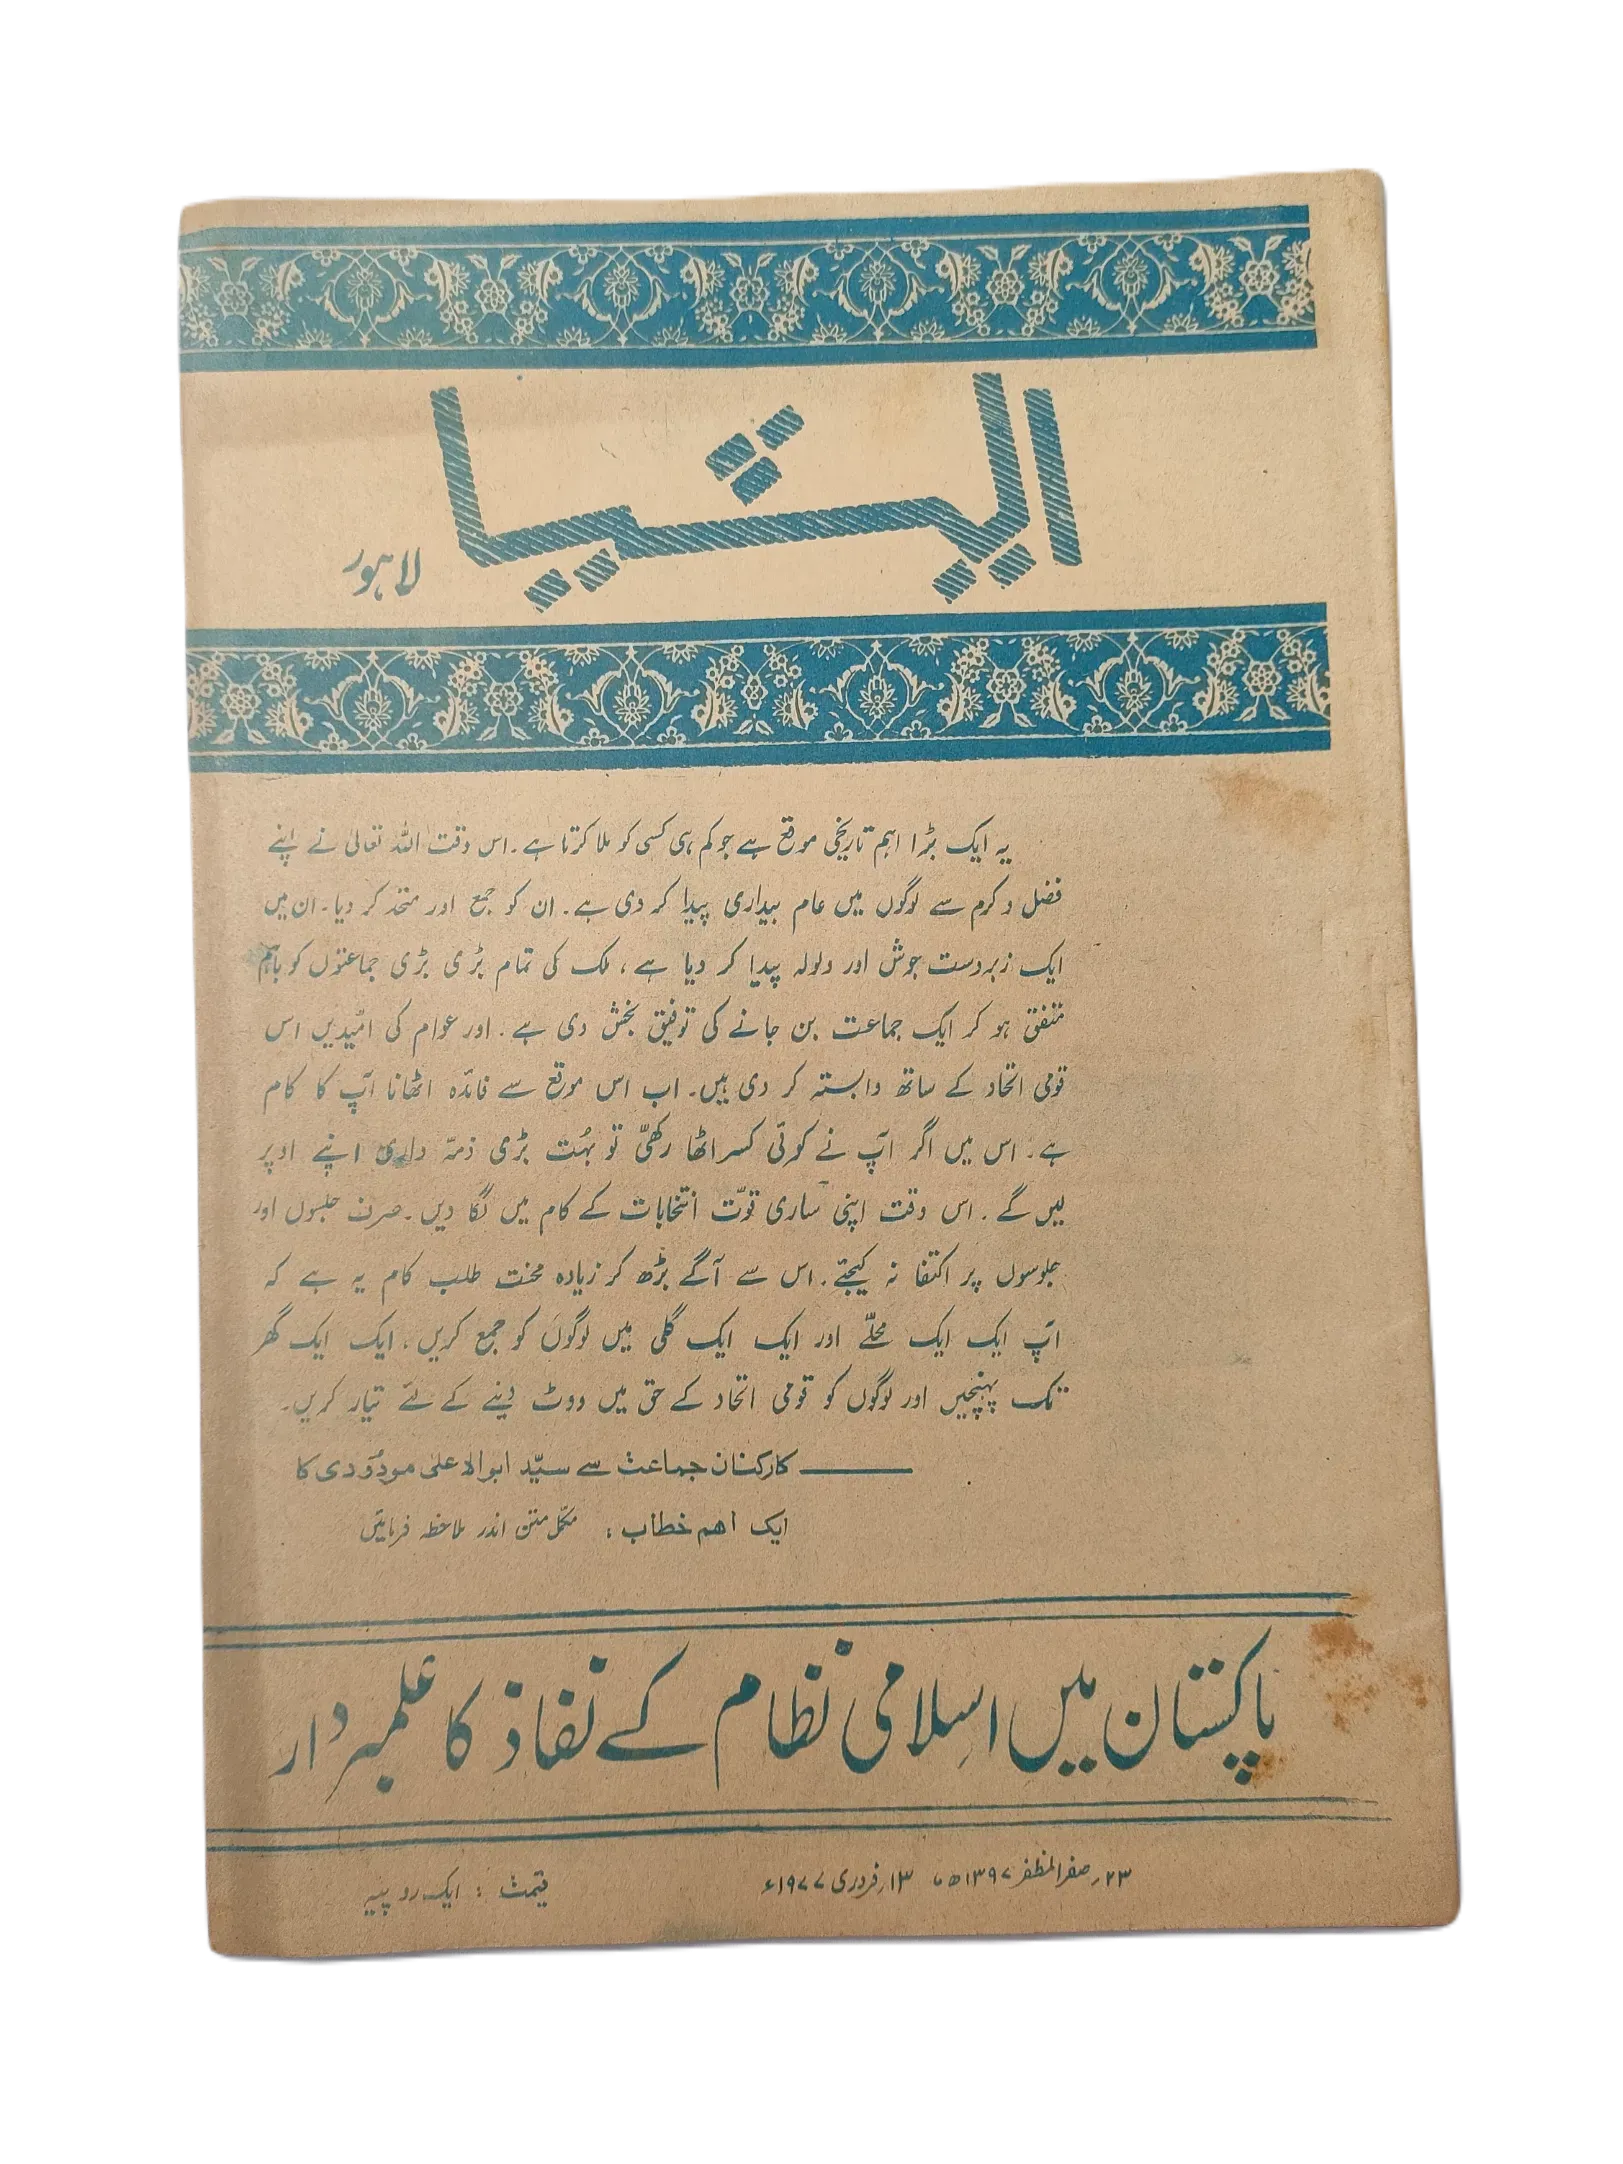 ایشیا
لاہور
یہ ایک بڑا اہم تاریخی موقع ہے جو کم ہی کسی کو ملا کرتا ہے۔ اس وقت اللہ تعالیٰ نے اپنے
فضل و کرم سے لوگوں میں عام بیداری پیدا کر دی ہے۔ ان کو جمع اور متحد کر دیا۔ ان میں
ایک زبردست جوش اور ولولہ پیدا کر دیا ہے، ملک کی تمام بڑی بڑی جماعتوں کو باہم
متفق ہو کر ایک جماعت بن جانے کی توفیق بخش دی ہے۔ اور عوام کی امیّدیں اس
قومی اتحاد کے ساتھ وابستہ کر دی ہیں۔ اب اس موقع سے فائدہ اٹھانا آپ کا کام
ہے۔ اس میں اگر آپ نے کوئی کسر اٹھا رکھّی تو بہُت بڑی ذمّہ داری اپنے اوپر
لیں گے۔ اس وقت اپنی ساری قوّت انتخابات کے کام میں لگا دیں۔ صرف جلسوں اور
جلوسوں پر اکتفا نہ کیجئے۔ اس سے آگے بڑھ کر زیادہ محنت طلب کام یہ ہے کہ
آپ ایک ایک محلّے اور ایک ایک گلی میں لوگوں کو جمع کریں، ایک ایک گھر
تک پہنچیں اور لوگوں کو قومی اتحاد کے حق میں ووٹ دینے کے لئے تیار کریں۔
کارکنان جماعت سے سیّد ابوالاعلیٰ مودُودی کا
ایک اہم خطاب: مکمّل متن اندر ملاحظہ فرمائیں
پاکستان میں اسلامی نظام کے نفاذ کا علمبردار
۲۳؍ صفر المظفر ۱۳۹۷ھ ۱۳؍ فروری ۱۹۷۷ء
قیمت : ایک روپیہ